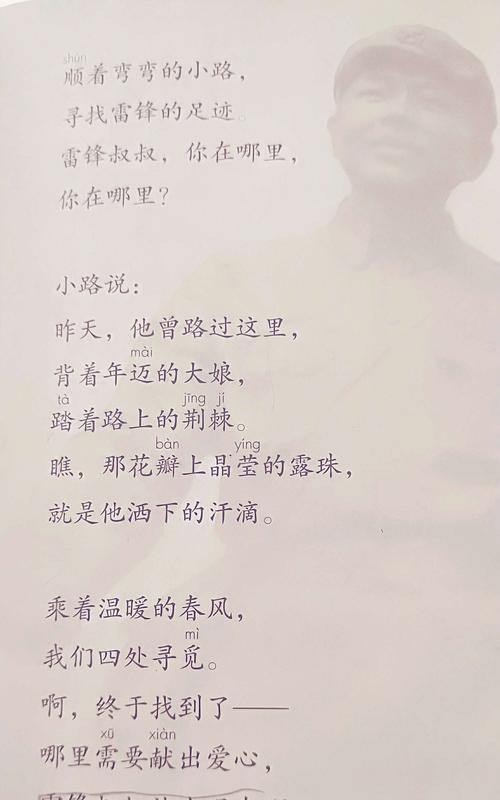 shùn
顺着弯弯的小路，
寻找雷锋的足迹。
雷锋叔叔，你在哪里，
你在哪里？
小路说：
昨天，他曾路过这里，
mài
背着年迈的大娘，
tà jīng jí
踏着路上的荆棘。
bàn yíng
瞧，那花瓣上晶莹的露珠，
就是他洒下的汗滴。
乘着温暖的春风，
mì
我们四处寻觅。
啊，终于找到了——
xū xiàn
哪里需要献出爱心，